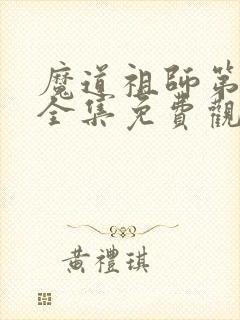 魔道祖師第
全集免費觀
黃禮琪